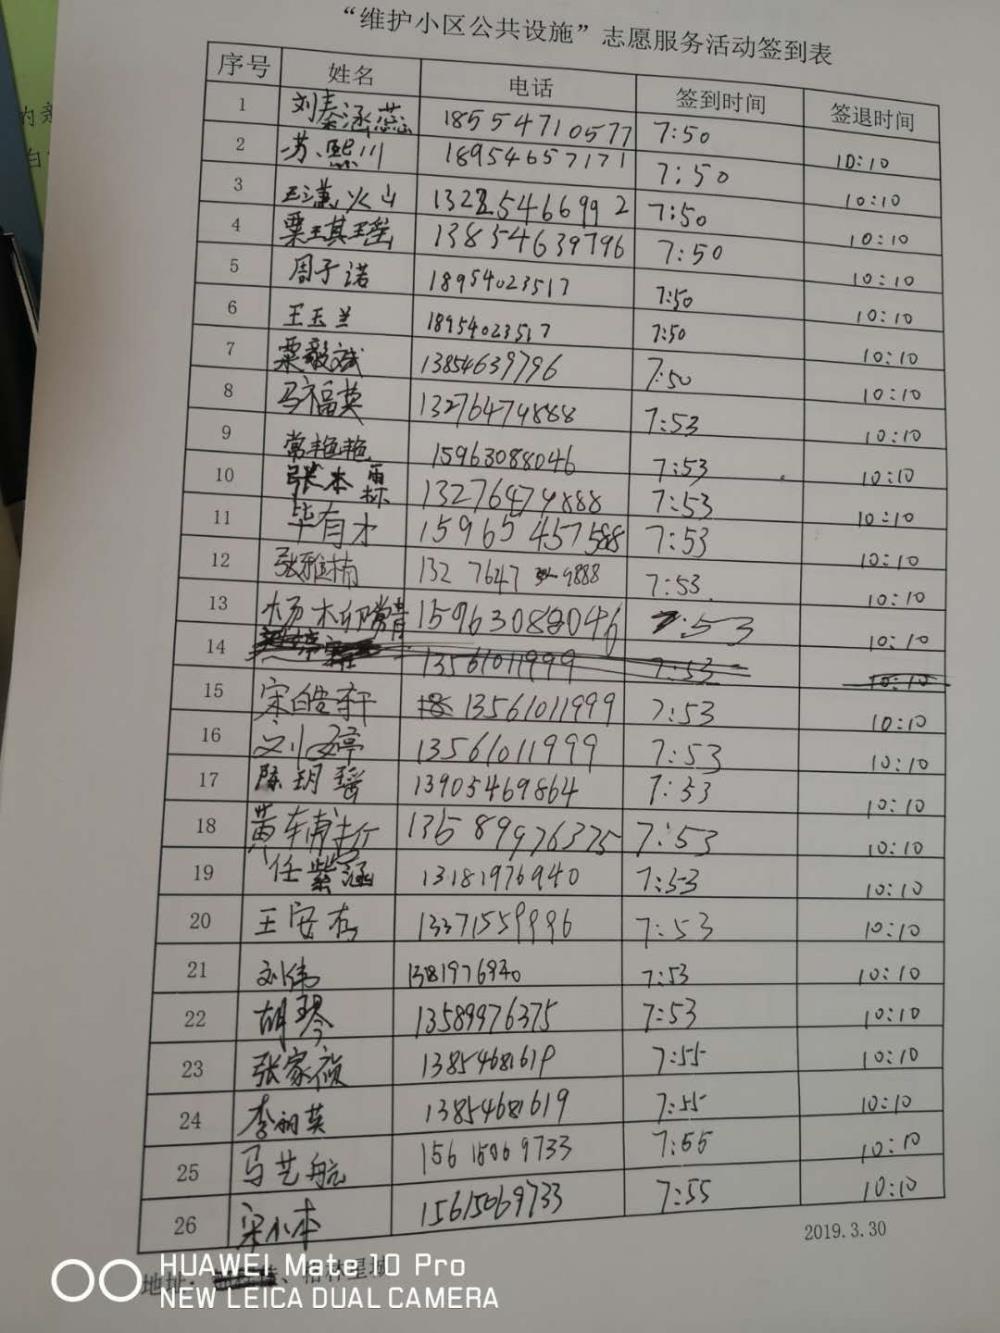 “维护小区公共设施”志愿服务活动签到表
序号 姓名 电话 签到时间 签退时间
1 刘秦涵蕊 18554710577 7:50 10:10
2 苏熙川 18954657171 7:50 10:10
3 13225466992 7:50 10:10
4 栗琪瑶 13854639796 7:50 10:10
5 周子诺 18954023517 7:50 10:10
6 王玉兰 18954023517 7:50 10:10
7 栗毅斌 13854639796 7:50 10:10
8 马福英 13276479888 7:53 10:10
9 常艳艳 15963088046 7:53 10:10
10 张本霖 13276479888 7:53 10:10
11 毕有才 15965457588 7:53 10:10
12 张雅楠 132 7647 9888 7:53 10:10
13 杨木卯常青 15963088046 7:53 10:10
14 13561011999 7:53 10:10
15 宋皓轩 13561011999 7:53 10:10
16 刘婷 13561011999 7:53 10:10
17 陈玥瑶 13905469864 7:53 10:10
18 黄 13589976375 7:53 10:10
19 任紫涵 13181976940 7:53 10:10
20 王安 7:53 10:10
21 刘伟 7:53 10:10
22 胡琴 13589976375 7:53 10:10
23 张家硕 13854681619 7:55 10:10
24 李丽英 13854681619 7:55 10:10
25 马艺航 15615069733 7:55 10:10
26 宋小本 15615069733 7:55 10:10
2019.3.30
地址: 、格林星城
HUAWEI Mate 10 Pro
NEW LEICA DUAL CAMERA